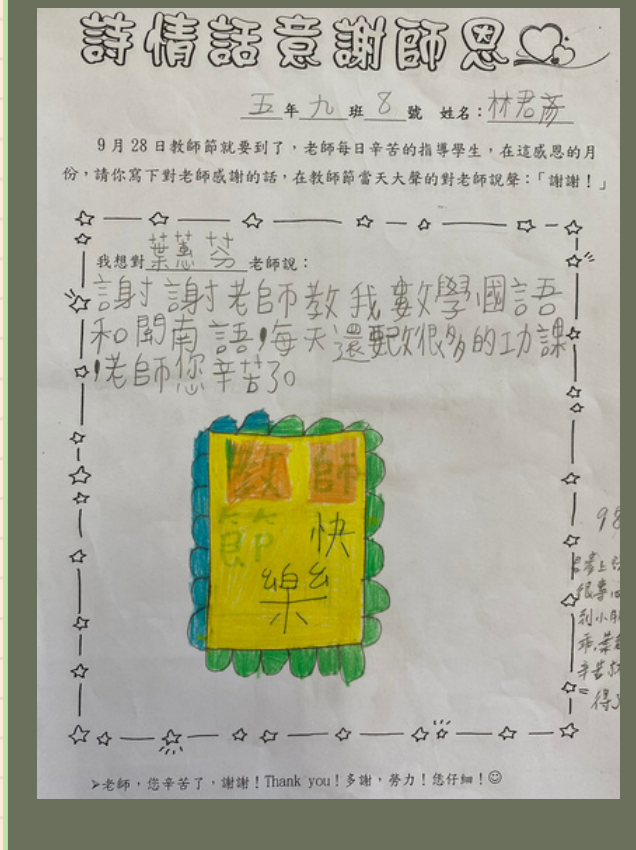 詩情話意謝師恩
五年九班8號 姓名：林君彥
9月28日教師節就要到了，老師每日辛苦的指導學生，在這感恩的月
份，請你寫下對老師感謝的話，在教師節當天大聲的對老師說聲：「謝謝！」
我想對葉蕙芬老師說：
謝謝老師教我數學、國語
和閩南語，每天還要改很多的功課
，老師您辛苦了。
教師
節快
樂
98
很專心
辛苦
➢老師，您辛苦了，謝謝！Thank you！多謝，勞力！恁仔細！☺